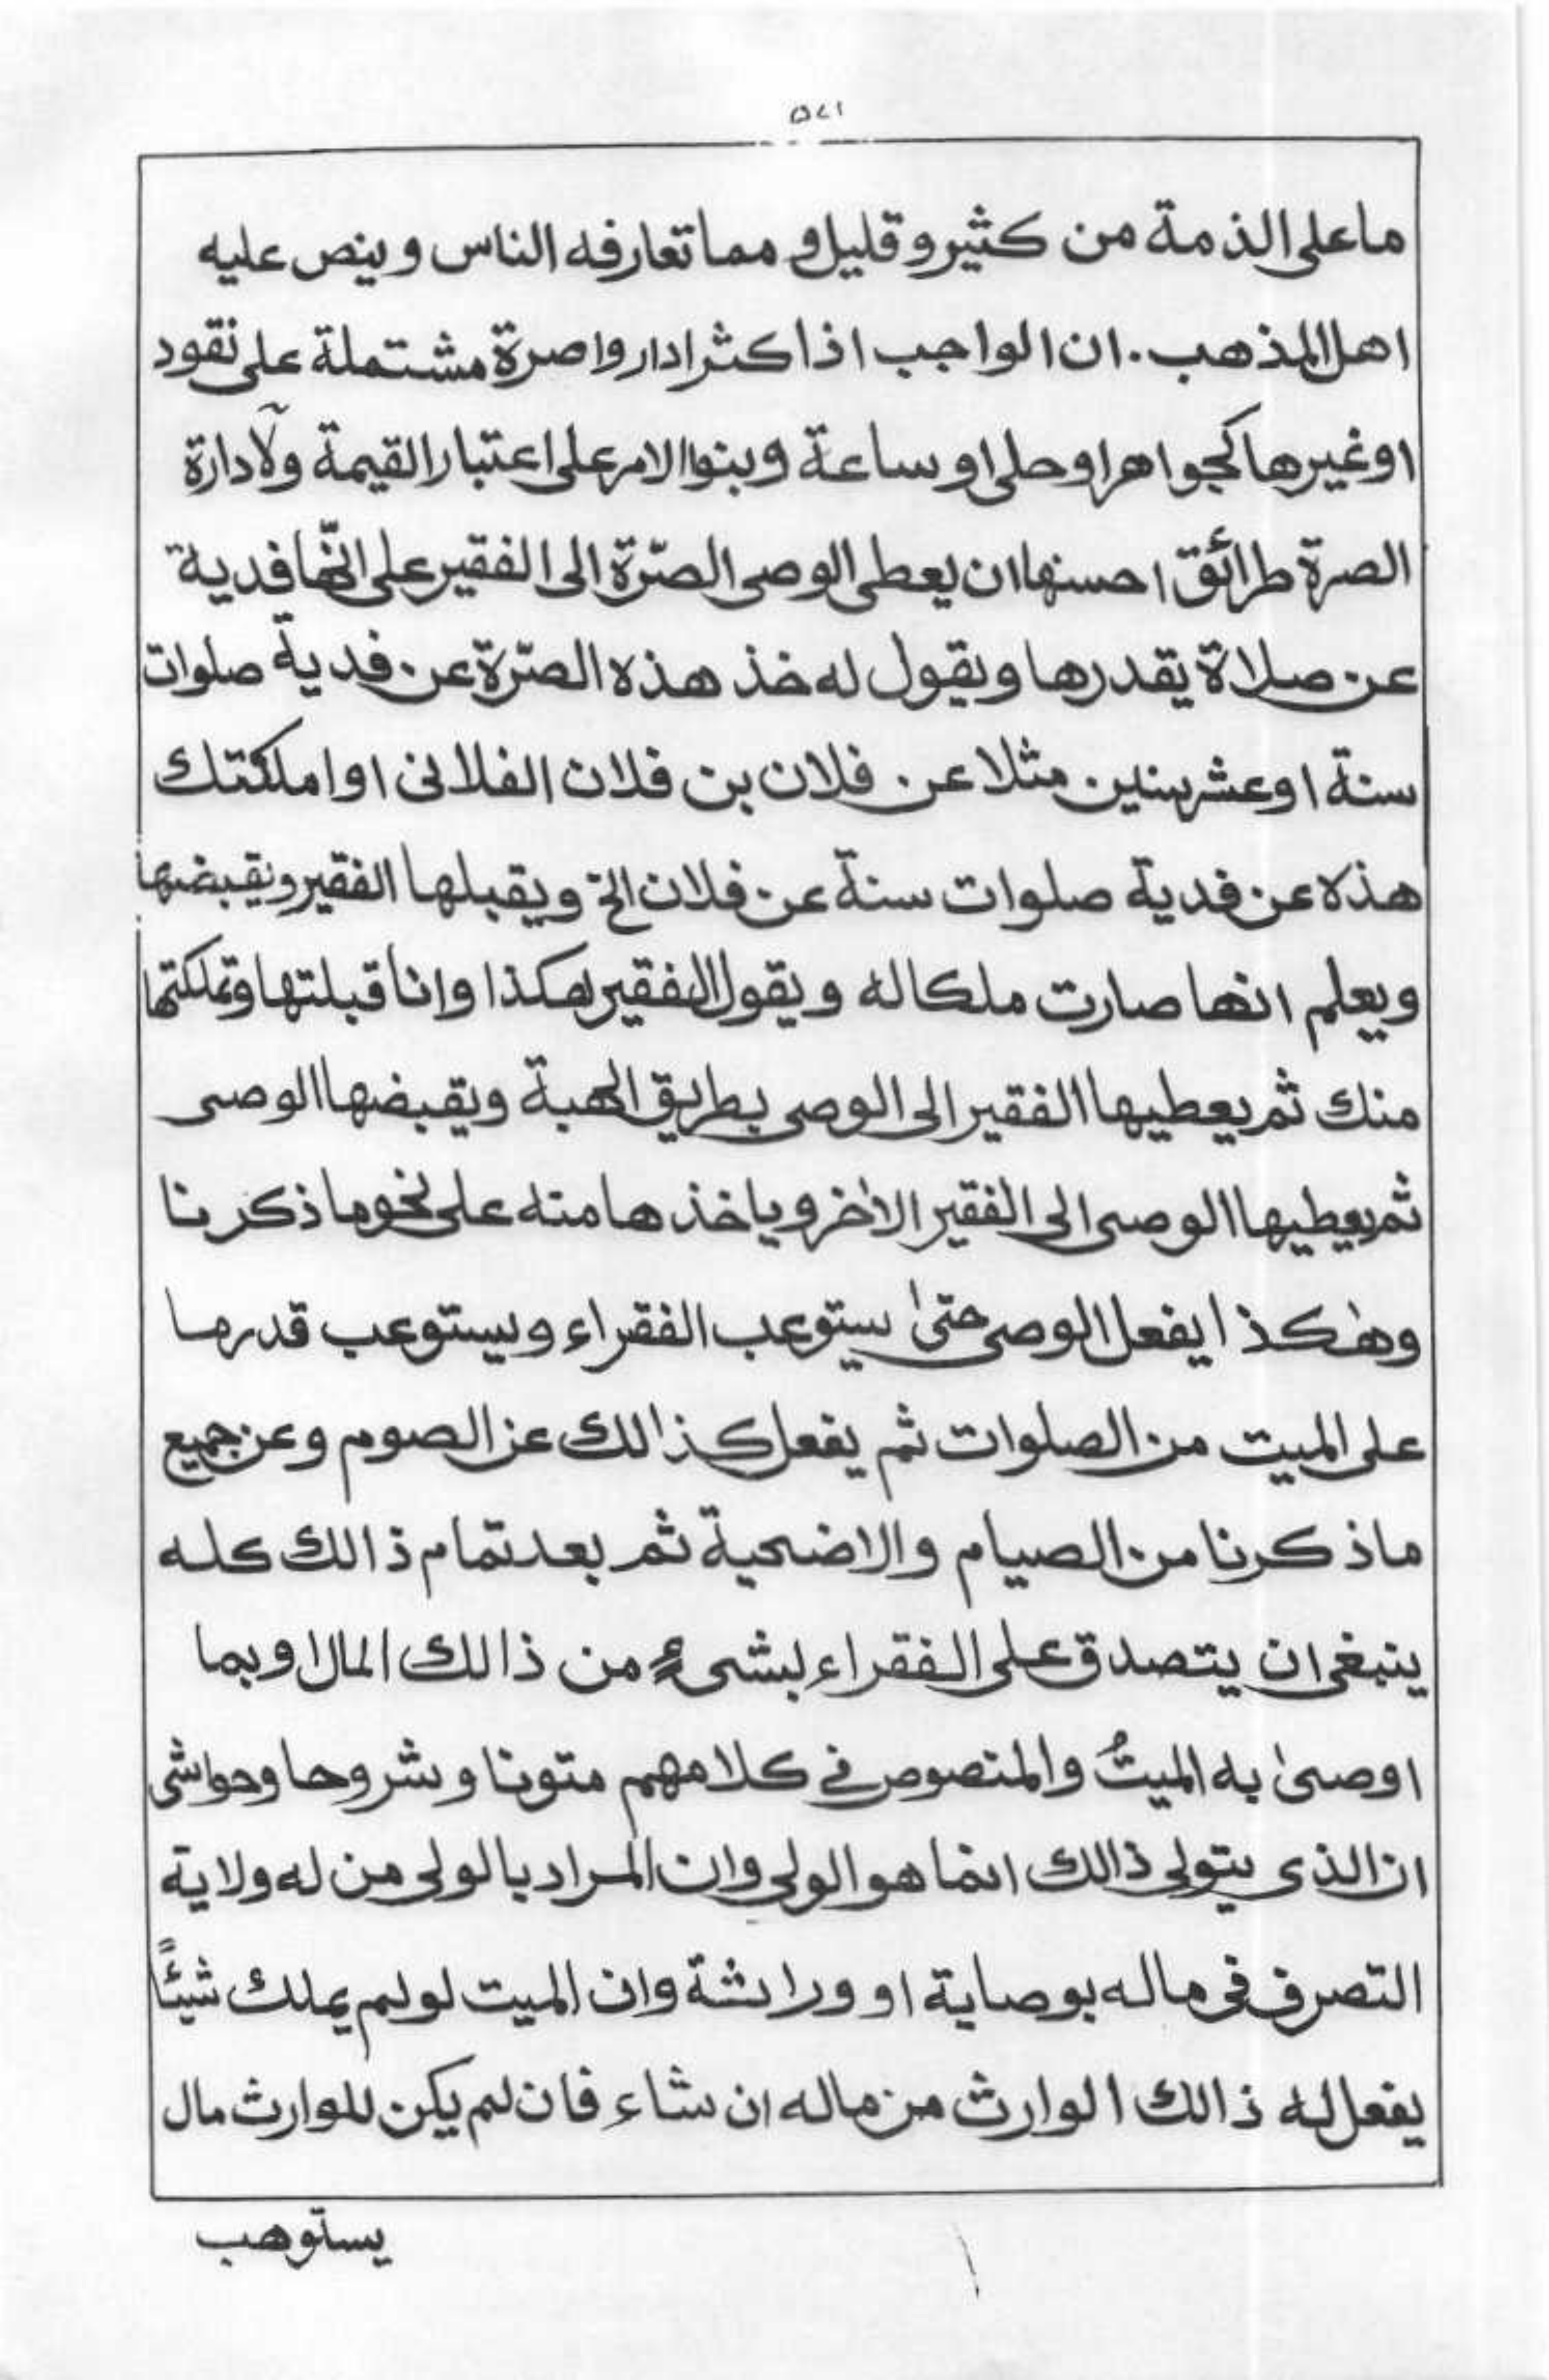 ۵۷۱
ما على الذمة من كثير و قليل و مما تعارفه الناس و ينص عليه
اهل المذهب. ان الواجب اذا كثر اداروا صرة مشتملة على نقود
او غيرها كجواهر او حلى او ساعة و بنوا الامر على اعتبار القيمة ولادارة
الصرة طرائق احسنها ان يعطى الوصى الصرّة الى الفقير على انّها فدية
عن صلاة يقدرها و يقول له خذ هذه الصرّة عن فدية صلوات
سنة او عشر سنين مثلا عن فلان بن فلان الفلانى او املكتك
هذه عن فدية صلوات سنة عن فلان الخ و يقبلها الفقير ويقبضها
و يعلم انها صارت ملكا له و يقول الفقير هكذا وانا قبلتها وتملكتها
منك ثم يعطيها الفقير الى الوصى بطريق الهبة ويقبضها الوصى
ثم يعطيها الوصى الى الفقير الاٰخر و ياخذها منه على نحو ما ذكرنا
وهٰكذا يفعل الوصى حتىٰ ستوعب الفقراء و يستوعب قدر ما
على الميت من الصلوات ثم يفعل كذالك عن الصوم و عن جميع
ما ذكرنا من الصيام و الاضحية ثم بعد تمام ذالك كله
ينبغى ان يتصدق على الفقراء بشىءٍ من ذالك المال او بما
اوصىٰ به الميتُ والمنصوص فى كلامهم متونا و شروحا وحواشى
ان الذى يتولى ذالك انما هو الولى وان المراد بالولى من له ولاية
التصرف فى ماله بوصاية او وراثة وان الميت لو لم يملك شيئًا
يفعل له ذالك الوارث من ماله ان شاء فان لم يكن للوارث مال
يستوهب